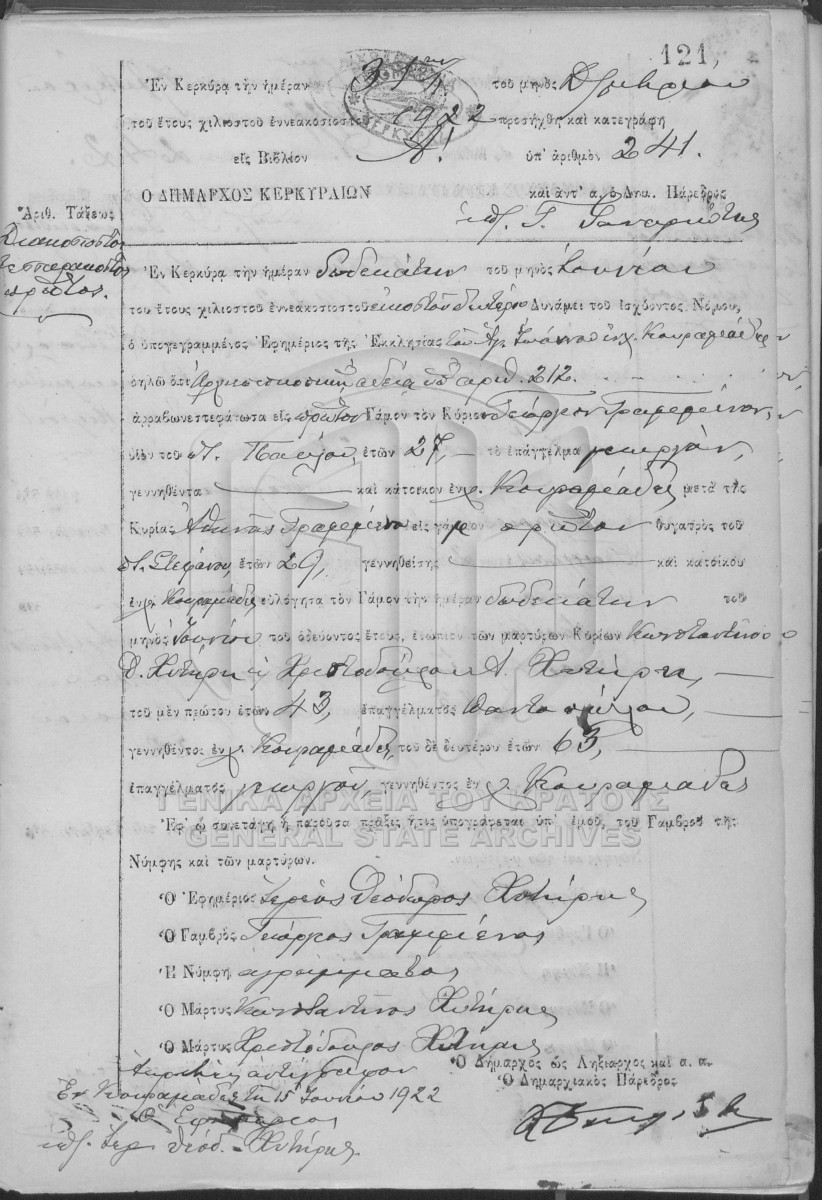 121,
Ἐν Κερκύρᾳ τὴν ἡμέραν 31ην τοῦ μηνὸς
τοῦ ἔτους χιλιοστοῦ ἐννεακοσιοστοῦ 1922 προσήχθη καὶ κατεγράφη
εἰς Βιβλίον Α'. ὑπ' ἀριθμὸν 241.
Ο ΔΗΜΑΡΧΟΣ ΚΕΡΚΥΡΑΙΩΝ καὶ ἀντ' α. ὁ Δημ. Πάρεδρος
Ἀριθ. Τάξεως
Διακοσιοστὸς
τεσσαρακοστὸς
πρῶτος.
Ἐν Κερκύρᾳ τὴν ἡμέραν δωδεκάτην τοῦ μηνὸς Ἰουνίου
τοῦ ἔτους χιλιοστοῦ ἐννεακοσιοστοῦ εἰκοστοῦ δευτέρου Δυνάμει τοῦ ἰσχύοντος Νόμου,
ὁ ὑπογεγραμμένος Ἐφημέριος τῆς Ἐκκλησίας τοῦ Ἁγ. Ἰωάννου ἐν χ. Κουραμάδες
δηλῶ ὅτι Ἀρχιεπισκοπικῇ ἀδείᾳ ὑπ' ἀριθ. 212.
ἀρραβωνεστεφάτωσα εἰς πρῶτον Γάμον τὸν Κύριον Γεώργιον Γραμμένον,
υἱὸν τοῦ π. Παύλου, ἐτῶν 27, τὸ ἐπάγγελμα γεωργὸν,
γεννηθέντα καὶ κάτοικον ἐν χ. Κουραμάδες μετὰ τῆς
Κυρίας Ἀθηνᾶς Γραμμένου εἰς γάμον πρῶτον θυγατρὸς τοῦ
π. Στεφάνου, ἐτῶν 29, γεννηθείσης καὶ κατοίκου
ἐν χ. Κουραμάδες εὐλόγησα τὸν Γάμον τὴν ἡμέραν δωδεκάτην τοῦ
μηνὸς Ἰουνίου τοῦ ὁδεύοντος ἔτους, ἐνώπιον τῶν μαρτύρων Κυρίων Κωνσταντίνου
Δ. Χυτήρη ἢ Χριστοδούλου Α. Χυτήρη,
τοῦ μὲν πρώτου ἐτῶν 43, ἐπαγγέλματος παντοπώλου,
γεννηθέντος ἐν χ. Κουραμάδες, τοῦ δὲ δευτέρου ἐτῶν 63,
ἐπαγγέλματος γεωργοῦ, γεννηθέντος ἐν χ. Κουραμάδες
ΓΕΝΙΚΑ ΑΡΧΕΙΑ ΤΟΥ ΚΡΑΤΟΥΣ
Ἐφ' ᾧ συνετάγη ἡ παροῦσα πρᾶξις ἥτις ὑπογράφεται ὑπ' ἐμοῦ, τοῦ Γαμβροῦ τῆς
GENERAL STATE ARCHIVES
Νύμφης καὶ τῶν μαρτύρων.
Ὁ Ἐφημέριος Ἱερεὺς Θεόδωρος Χυτήρης
Ὁ Γαμβρὸς Γεώργιος Γραμμένος
Ἡ Νύμφη ἀγράμματος
Ὁ Μάρτυς Κωνσταντῖνος Χυτήρης
Ὁ Μάρτυς Χριστόδουλος Χυτήρης
Ἀκριβὲς ἀντίγραφον
Ὁ Δήμαρχος ὡς Ληξίαρχος καὶ α. α.
Ὁ Δημαρχιακὸς Πάρεδρος
Ἐν Κουραμάδες τῇ 15 Ἰουνίου 1922
Ὁ Ἐφημέριος
ὑπ. Ἱερ. Θεόδ. Χυτήρης